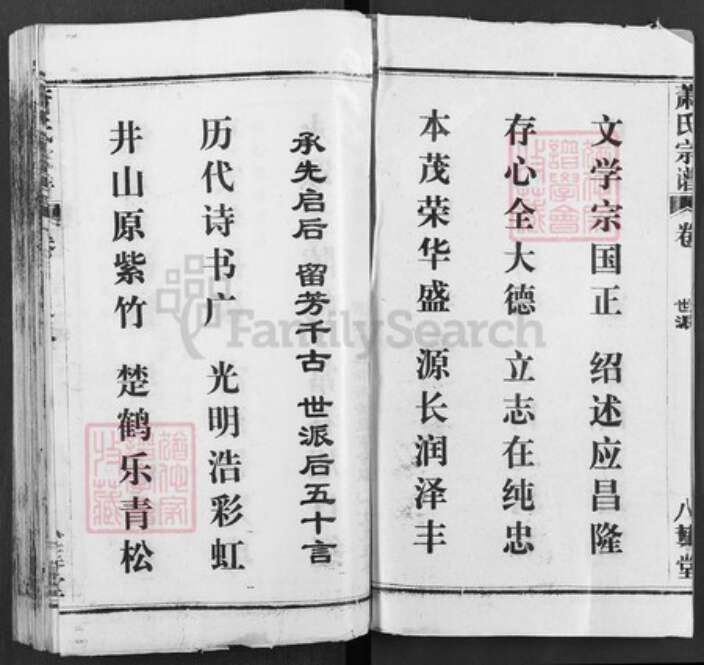 萧氏宗谱
卷
世派
八
堂
文学宗国正 绍述应昌隆
存心全大德 立志在纯忠
本茂荣华盛 源长润泽丰
承先启后 留芳千古 世派后五十言
历代诗书广 光明浩彩虹
井山原紫竹 楚鹤乐青松
FamilySearch